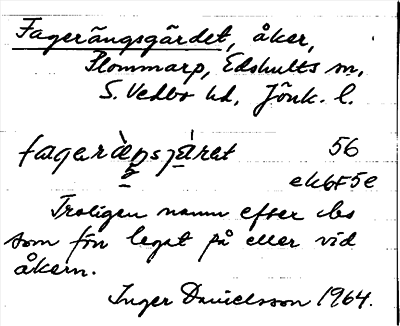 Fagerängsgärdet, åker,
Plommarp, Edshults sn,
S. Vedbo hd, Jönk. l.
fageràŋsjæ̀ret 56
ek6F5e
Troligen namn efter ebs
som förr legat på eller vid
åkern.
Inger Danielsson 1964.